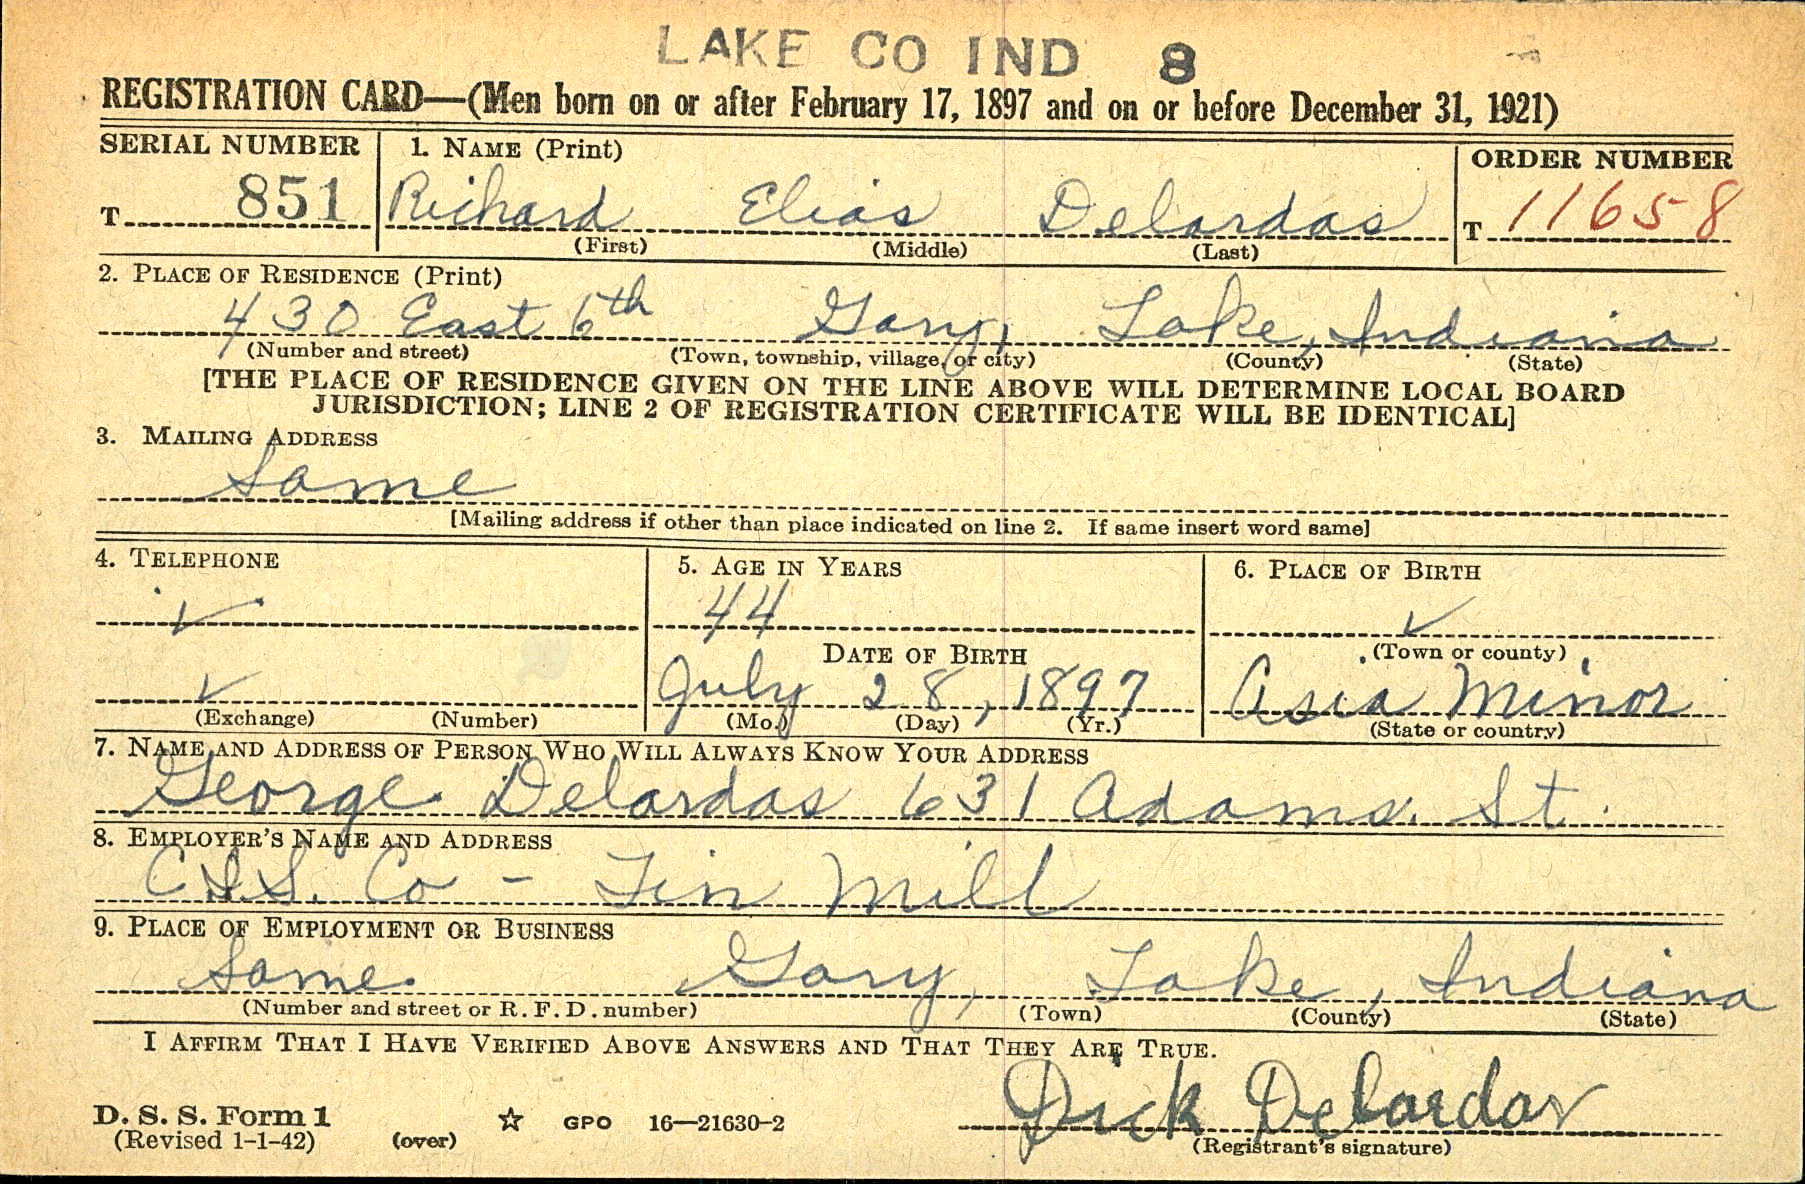 LAKE CO IND 8
REGISTRATION CARD—(Men born on or after February 17, 1897 and on or before December 31, 1921)
SERIAL NUMBER 1. NAME (Print) ORDER NUMBER
T 851 Richard Elias Delardas T 11658
(First) (Middle) (Last)
2. PLACE OF RESIDENCE (Print)
430 East 6th Gary, Lake, Indiana
(Number and street) (Town, township, village, or city) (County) (State)
[THE PLACE OF RESIDENCE GIVEN ON THE LINE ABOVE WILL DETERMINE LOCAL BOARD
JURISDICTION; LINE 2 OF REGISTRATION CERTIFICATE WILL BE IDENTICAL]
3. MAILING ADDRESS
Same
[Mailing address if other than place indicated on line 2. If same insert word same]
4. TELEPHONE 5. AGE IN YEARS 6. PLACE OF BIRTH
✓ 44 ✓
DATE OF BIRTH (Town or county)
✓ July 28, 1897 Asia Minor
(Exchange) (Number) (Mo.) (Day) (Yr.) (State or country)
7. NAME AND ADDRESS OF PERSON WHO WILL ALWAYS KNOW YOUR ADDRESS
George Delardas 631 Adams. St.
8. EMPLOYER'S NAME AND ADDRESS
C.I.S. Co - Tin Mill
9. PLACE OF EMPLOYMENT OR BUSINESS
Same. Gary, Lake, Indiana
(Number and street or R. F. D. number) (Town) (County) (State)
I AFFIRM THAT I HAVE VERIFIED ABOVE ANSWERS AND THAT THEY ARE TRUE.
Dick Delardas
D. S. S. Form 1 ☆ GPO 16—21630-2
(Revised 1-1-42) (over) (Registrant's signature)